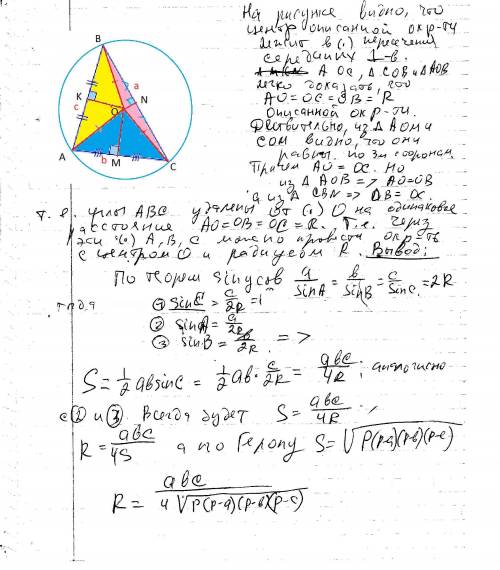 B
K
a
N
c
O
A
M
b
C
На рисунке видно, что
центр описанной окр-ти
лежит в (.) пересечения
серединных
AOC, △COB и △AOB
легко доказать, что
AO = OC = OB = R
описанной окр-ти.
Действительно, из △AOM и
COM видно, что они
равны по 3м сторонам.
Причем AO = OC. Но
из △AOB => AO=OB
а из △CBN => OB = OC
т.е. углы ABC удалены от (.) O на одинаковое
расстояние AO=OB=OC=R. Т.е. через
эти (.) A, B, C можно провести окр-ть
с центром O и радиусом R. Вывод:
По теорем sinусов a/sinA = b/sinB = c/sinC = 2R
тогда
① sinC = c/2R =>
② sinA = a/2R
③ sinB = b/2R =>
S = 1/2 ab sinC = 1/2 ab · c/2R = abc/4R; аналогично
с ② и ③. Всегда будет S = abc/4R;
R = abc/4S а по Герону S = √P(p-a)(p-b)(p-c)
R = abc/4√P(p-a)(p-b)(p-c)